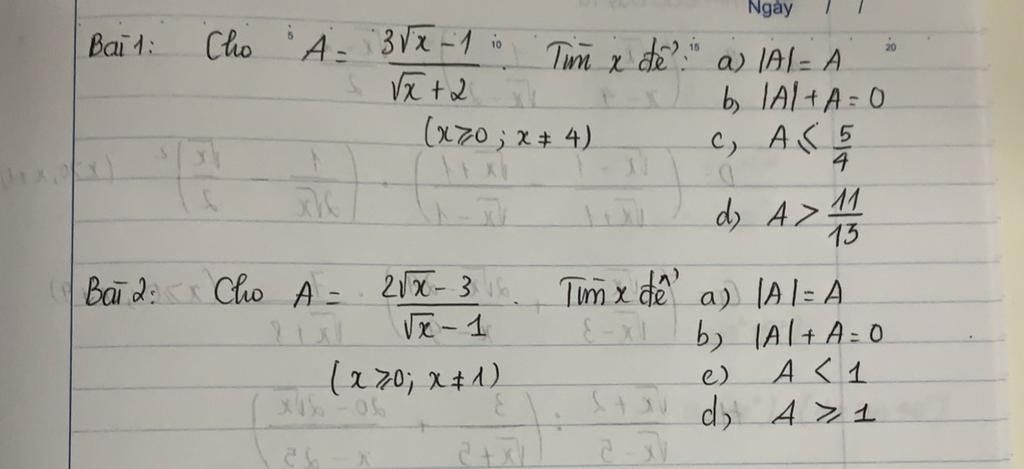 Ngày / /
5 10 15 20
Bài 1: Cho A = (3√x - 1)/(√x + 2). Tìm x để: a) |A| = A
b) |A| + A = 0
(x ≥ 0; x ≠ 4) c) A ≤ 5/4
d) A > 11/13
Bài 2: Cho A = (2√x - 3)/(√x - 1). Tìm x để a) |A| = A
b) |A| + A = 0
(x ≥ 0; x ≠ 1) c) A < 1
d) A ≥ 1